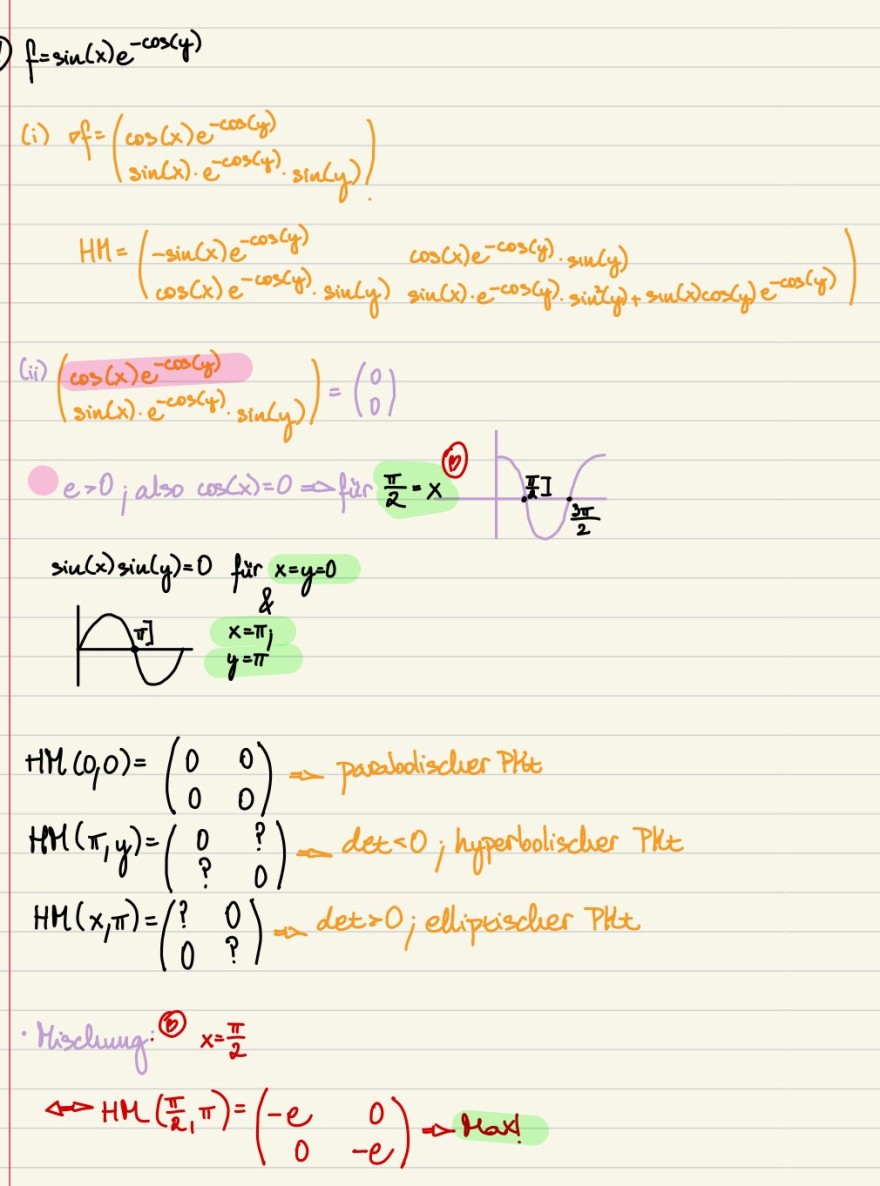 f=sin(x)e^-cos(y)
(i) ∇f= (cos(x)e^-cos(y)
sin(x)·e^-cos(y)·sin(y))
HM= (-sin(x)e^-cos(y) cos(x)e^-cos(y)·sin(y)
cos(x)e^-cos(y)·sin(y) sin(x)·e^-cos(y)·sin²(y)+sin(x)cos(y)e^-cos(y))
(ii) (cos(x)e^-cos(y)
sin(x)·e^-cos(y)·sin(y)) = (0
0)
e>0; also cos(x)=0 ⇒ für π/2 = x
π/2]
3π/2
sin(x)sin(y)=0 für x=y=0
&
π] x=π;
y=π
HM(0,0)= (0 0
0 0) ⇒ parabolischer Pkt
HM(π,y)= (0 ?
? 0) ⇒ det<0; hyperbolischer Pkt
HM(x,π)= (? 0
0 ?) ⇒ det>0; elliptischer Pkt
· Mischung: x=π/2
⇔ HM(π/2,π)= (-e 0
0 -e) ⇒ Max!